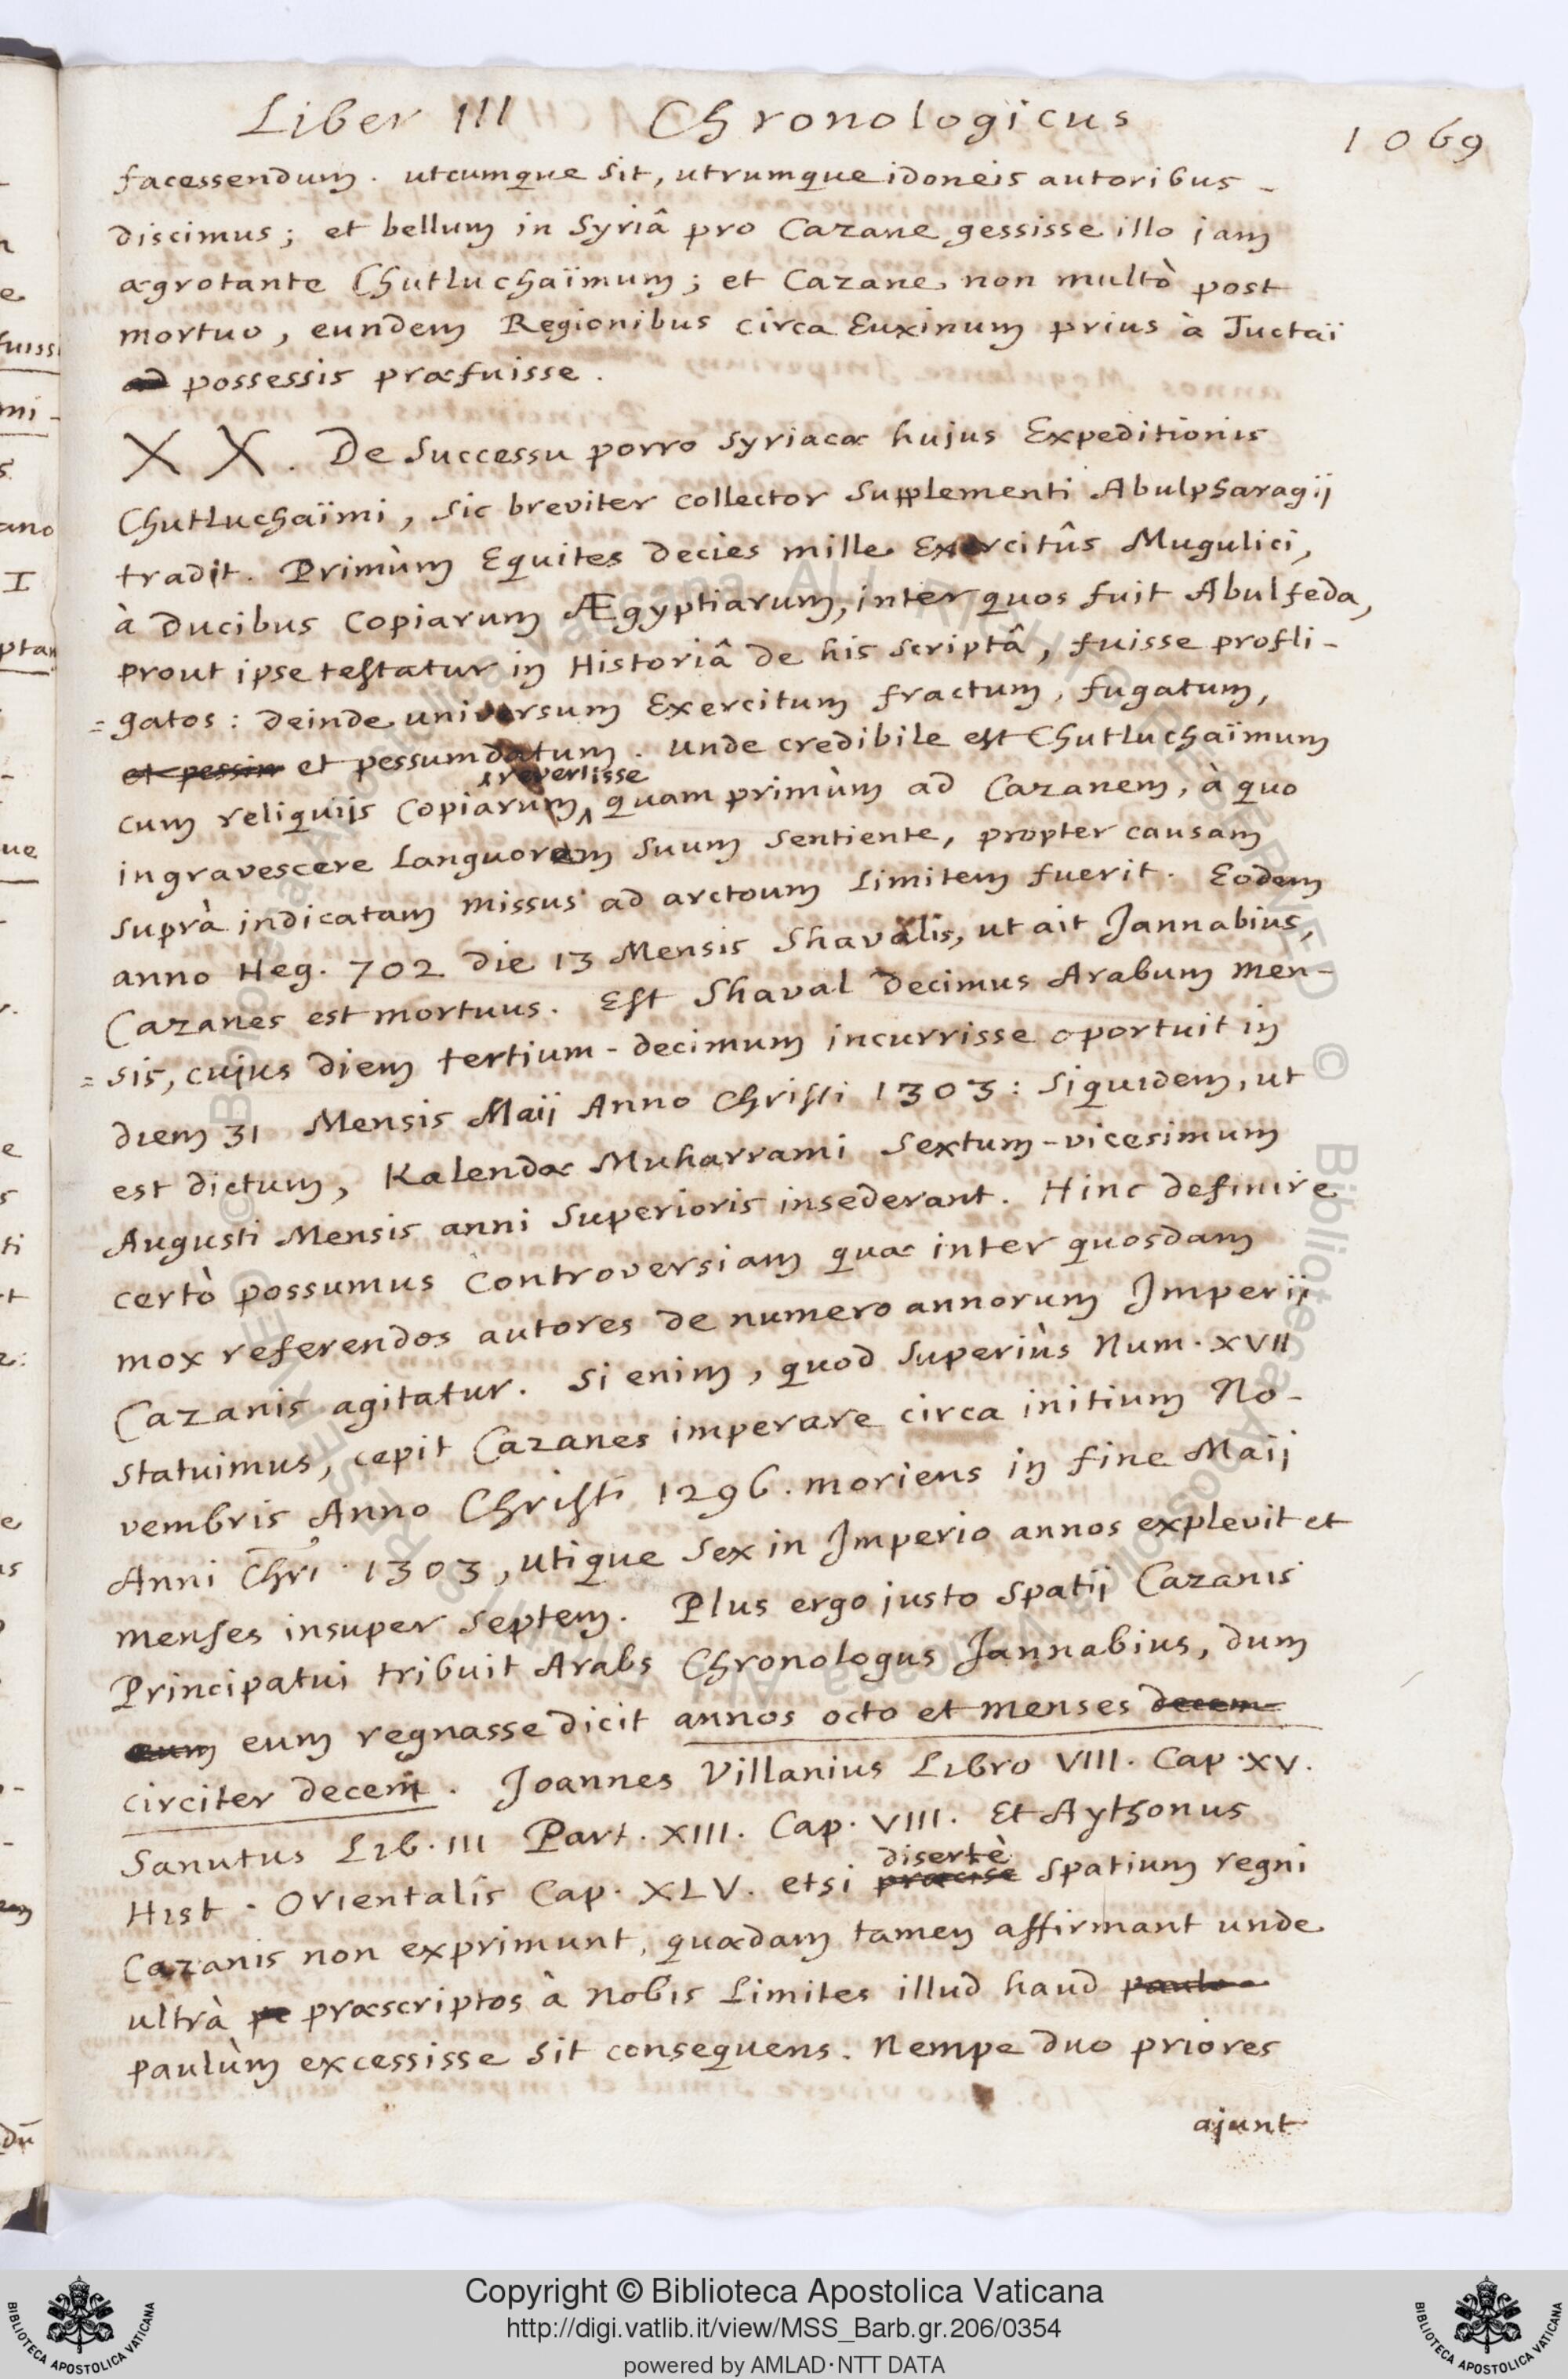 Liber III Chronologicus 1069
facessendum. utcumque sit, utrumque idoneis autoribus
discimus; et bellum in Syriâ pro Cazane gessisse illo jam
ægrotante Chutluchaïmum; et Cazane non multò post
mortuo, eundem Regionibus circa Euxinum prius à Tuctaï
ad possessis præfuisse.
XX. De Successu porro Syriacæ hujus Expeditionis
Chutluchaïmi, sic breviter collector Supplementi Abulpharagij
tradit. Primùm Equites decies mille Exercitûs Mugulici,
à Ducibus Copiarum Ægyptiarum, inter quos fuit Abulfeda,
prout ipse testatur in Historiâ de his scriptâ, fuisse profli-
=gatos: deinde universum Exercitum fractum, fugatum,
et pessin et pessumdatum. Unde credibile est Chutluchaïmum
revertisse
cum reliquijs Copiarum, quam primùm ad Cazanem, à quo
ingravescere Languorem suum sentiente, propter causam
suprà indicatam missus ad arctoum Limitem fuerit. Eodem
anno Heg. 702 die 13 Mensis Shavalis, ut ait Jannabius,
Cazanes est mortuus. Est Shaval Decimus Arabum men-
=sis, cujus diem tertium-decimum incurrisse oportuit in
diem 31 Mensis Maij Anno Christi 1303: siquidem, ut
est dictum, Kalendæ Muharrami Sextum-vicesimum
Augusti Mensis anni Superioris insederant. Hinc definire
certò possumus Controversiam quæ inter quosdam
mox referendos autores de numero annorum Imperij
Cazanis agitatur. Si enim, quod Superiùs Num. XVII
statuimus, cepit Cazanes imperare circa initium No-
vembris Anno Christi 1296. moriens in fine Maij
Anni Chri 1303, utique Sex in Imperio annos explevit et
menses insuper septem. Plus ergo justo Spatij Cazanis
Principatui tribuit Arabs Chronologus Jannabius, dum
eum eum regnasse dicit annos octo et menses decem
circiter decem. Joannes Villanius Libro VIII. Cap. XV.
Sanutus Lib. III Part. XIII. Cap. VIII. Et Aythonus
disertè
Hist. Orientalis Cap. XLV. etsi præcise Spatium regni
Cazanis non exprimunt, quædam tamen affirmant unde
ultrà pe præscriptos à Nobis Limites illud haud paulo
paulùm excessisse sit consequens. Nempe duo priores
ajunt
Copyright © Biblioteca Apostolica Vaticana
http://digi.vatlib.it/view/MSS_Barb.gr.206/0354
powered by AMLAD·NTT DATA
BIBLIOTECA APOSTOLICA VATICANA
BIBLIOTECA APOSTOLICA VATICANA